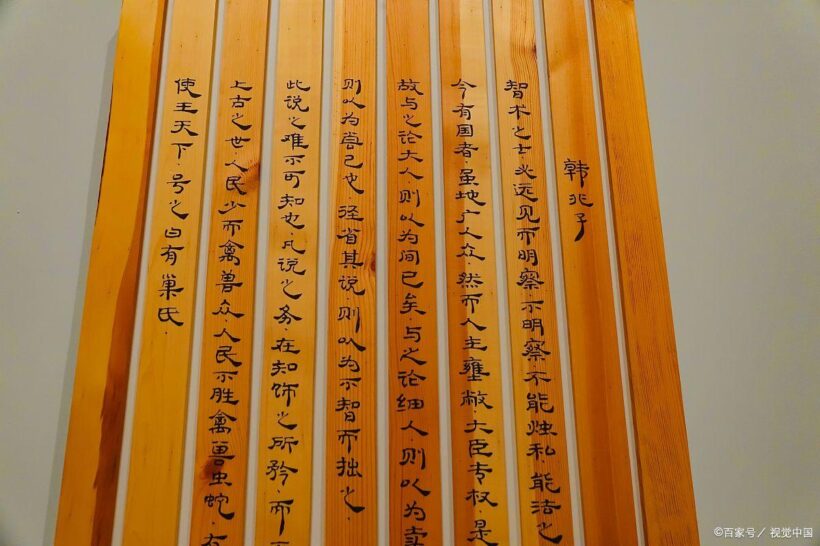 韩非子
智术之士.必远见而明察.不明察.不能烛私.能法之
今有国者.虽地广人众.然而人主壅蔽.大臣专权.是
故与之论大人.则以为间己矣.与之论细人.则以为卖
则以为尝己也.径省其说.则以为不智而拙之.
此说之难不可知也.凡说之务.在知饰之所矜.而
上古之世.人民少而禽兽众.人民不胜禽兽虫蛇.有
使王天下.号之曰有巢氏.
©百家号/视觉中国